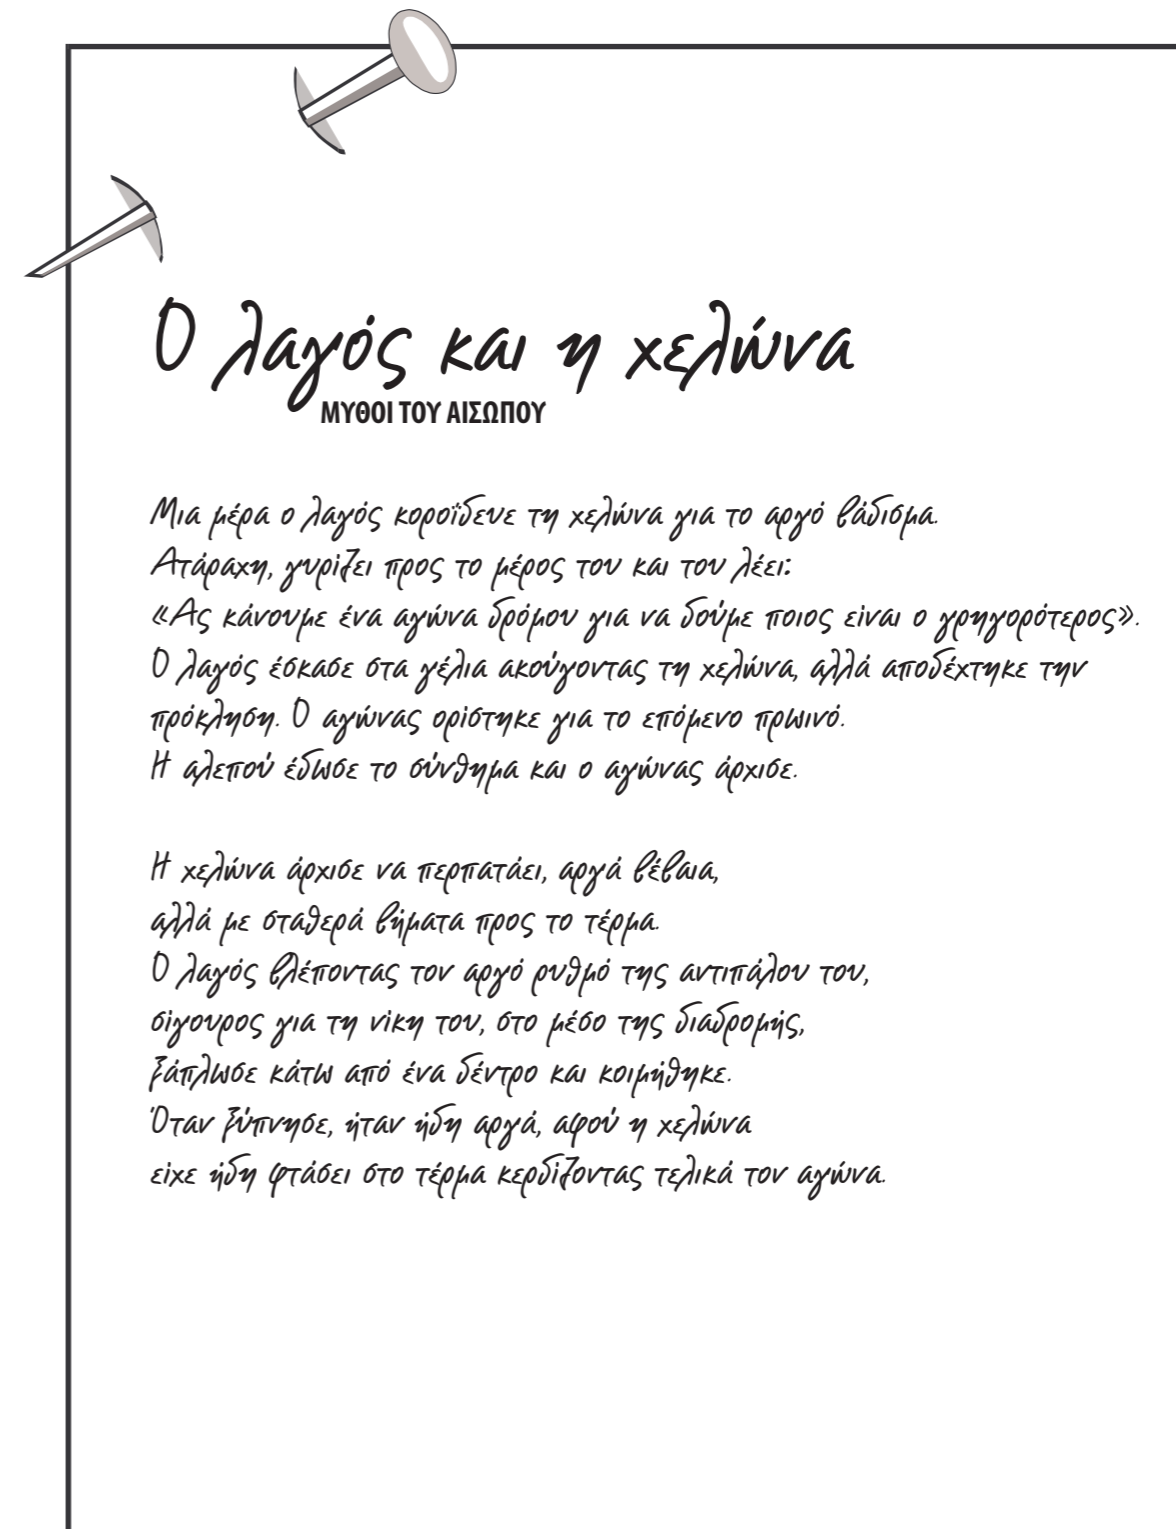 Ο λαγός και η χελώνα
ΜΥΘΟΙ ΤΟΥ ΑΙΣΩΠΟΥ
Μια μέρα ο λαγός κοροΐδευε τη χελώνα για το αργό βάδισμα.
Ατάραχη, γυρίζει προς το μέρος του και του λέει:
«Ας κάνουμε ένα αγώνα δρόμου για να δούμε ποιος είναι ο γρηγορότερος».
Ο λαγός έσκασε στα γέλια ακούγοντας τη χελώνα, αλλά αποδέχτηκε την
πρόκληση. Ο αγώνας ορίστηκε για το επόμενο πρωινό.
Η αλεπού έδωσε το σύνθημα και ο αγώνας άρχισε.
Η χελώνα άρχισε να περπατάει, αργά βέβαια,
αλλά με σταθερά βήματα προς το τέρμα.
Ο λαγός βλέποντας τον αργό ρυθμό της αντιπάλου του,
σίγουρος για τη νίκη του, στο μέσο της διαδρομής,
ξάπλωσε κάτω από ένα δέντρο και κοιμήθηκε.
Όταν ξύπνησε, ήταν ήδη αργά, αφού η χελώνα
είχε ήδη φτάσει στο τέρμα κερδίζοντας τελικά τον αγώνα.